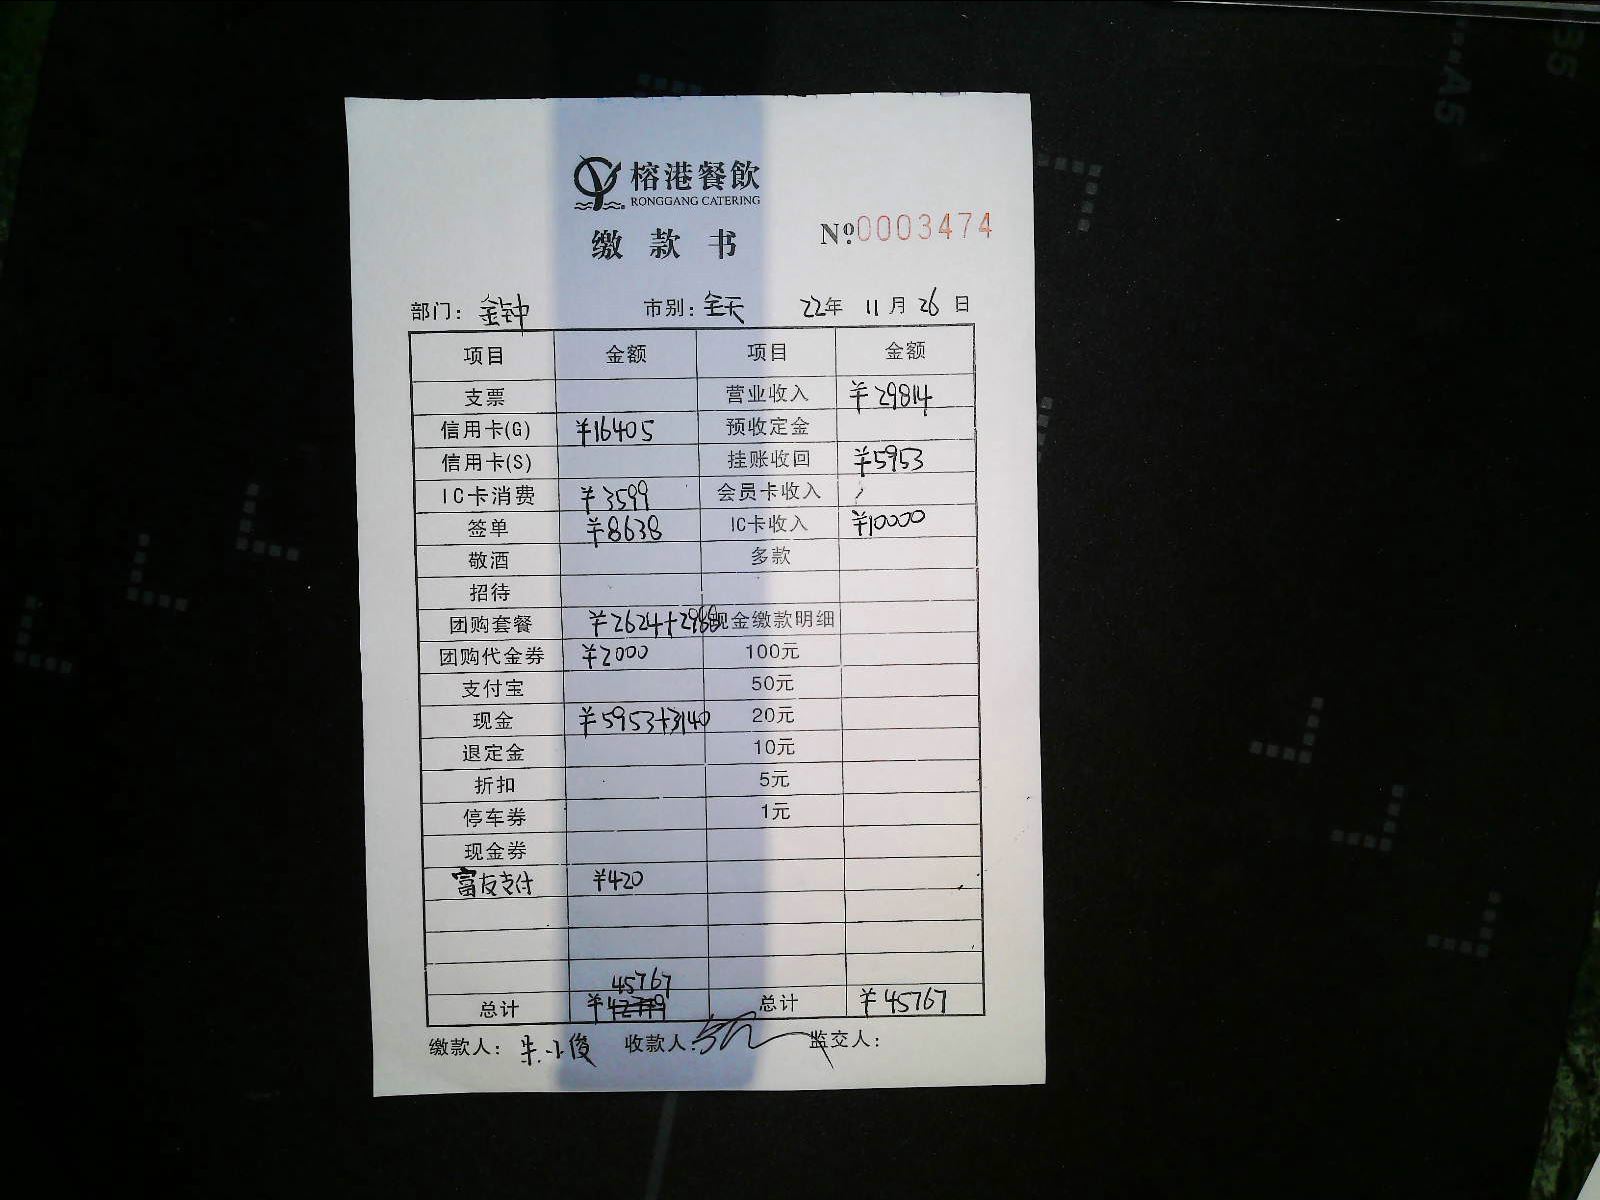 榕港餐飲
RONGGANG CATERING
缴款书
№0003474
部门：金钟 市别：全天 22年 11月 26日
项目 金额 项目 金额
支票 营业收入 ¥29814
信用卡(G) ¥16405 预收定金
信用卡(S) 挂账收回 ¥5953
IC卡消费 ¥3599 会员卡收入
签单 ¥8638 IC卡收入 ¥10000
敬酒 多款
招待
团购套餐 ¥2624+2988 现金缴款明细
团购代金券 ¥2000 100元
支付宝 50元
现金 ¥5953+3140 20元
退定金 10元
折扣 5元
停车券 1元
现金券
富友支付 ¥420
45767
总计 ¥42779 总计 ¥45767
缴款人：朱小俊 收款人： 监交人：
A5
B5